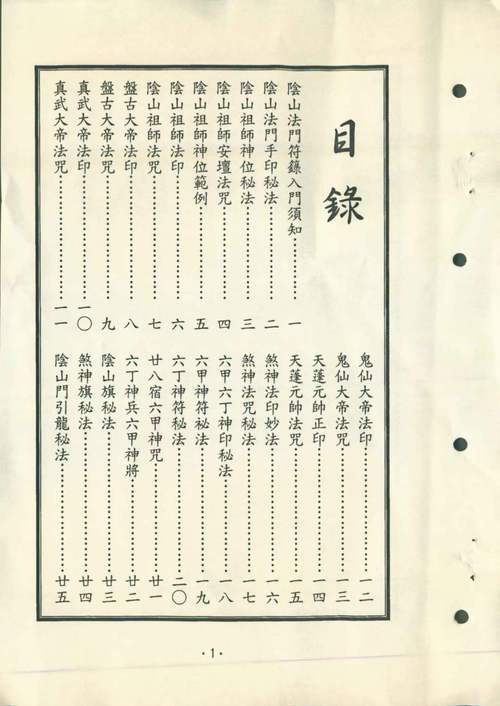 目錄
陰山法門符籙入門須知⋯⋯⋯⋯一
陰山法門手印秘法⋯⋯⋯⋯二
陰山祖師神位秘法⋯⋯⋯⋯三
陰山祖師安壇法咒⋯⋯⋯⋯四
陰山祖師神位範例⋯⋯⋯⋯五
陰山祖師法印⋯⋯⋯⋯六
陰山祖師法咒⋯⋯⋯⋯七
盤古大帝法印⋯⋯⋯⋯八
盤古大帝法咒⋯⋯⋯⋯九
真武大帝法印⋯⋯⋯⋯一〇
真武大帝法咒⋯⋯⋯⋯一一
鬼仙大帝法印⋯⋯⋯⋯一二
鬼仙大帝法咒⋯⋯⋯⋯一三
天蓬元帥正印⋯⋯⋯⋯一四
天蓬元帥法咒⋯⋯⋯⋯一五
煞神法印妙法⋯⋯⋯⋯一六
煞神法咒秘法⋯⋯⋯⋯一七
六甲六丁神印秘法⋯⋯⋯⋯一八
六甲神符秘法⋯⋯⋯⋯一九
六丁神符秘法⋯⋯⋯⋯二〇
廿八宿六甲神咒⋯⋯⋯⋯廿一
六丁神兵六甲神將⋯⋯⋯⋯廿二
陰山旗秘法⋯⋯⋯⋯廿三
煞神旗秘法⋯⋯⋯⋯廿四
陰山門引龍秘法⋯⋯⋯⋯廿五
·1·